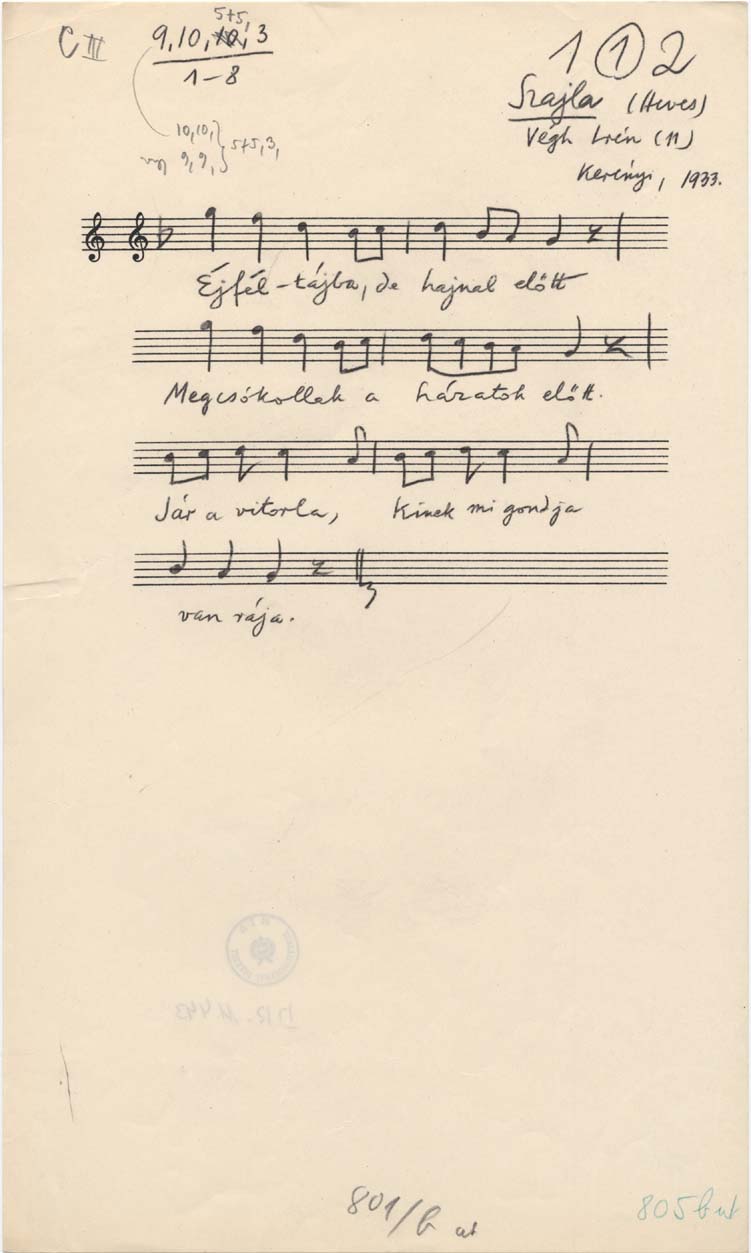 C III
5+5,
9,10,10,3
1-8
10,10,
vagy 9,9, } 5+5,3,
1 1 2
Szajla (Heves)
Végh Irén (11)
Kerényi, 1933.
Éjfél-tájba, de hajnal előtt
Megcsókollak a házatok előtt.
Jár a vitorla, Kinek mi gondja
van rája.
801/b ut
805 b ut